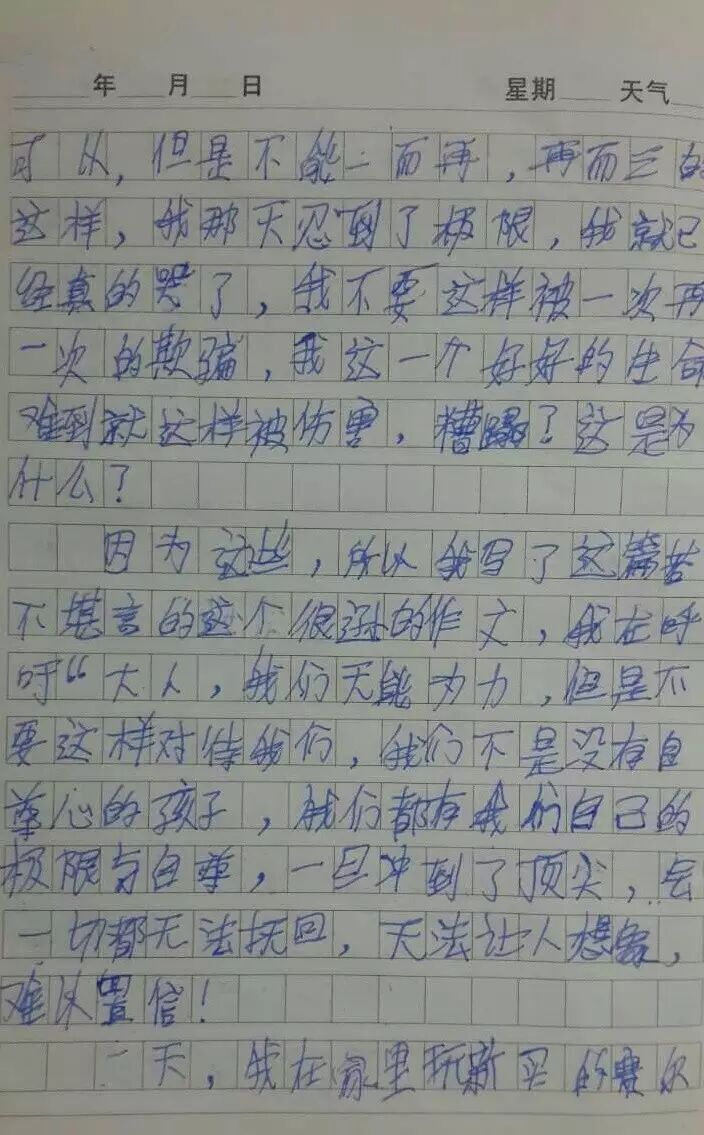 年 月 日 星期 天气
可以，但是不能一而再，再而三的
这样，我那天忍到了极限，我就已
经真的哭了，我不要这样被一次再
一次的欺骗，我这一个好好的生命
难到就这样被伤害，糟蹋？这是为
什么？
因为这些，所以我写了这篇苦
不堪言的这个很逊的作文，我在呼
吁“大人，我们无能为力，但是不
要这样对待我们，我们不是没有自
尊心的孩子，我们都有我们自己的
极限与自尊，一旦冲到了顶尖，会
一切都无法挽回，无法让人想象，
难以置信！
一天，我在家里玩新买的赛尔